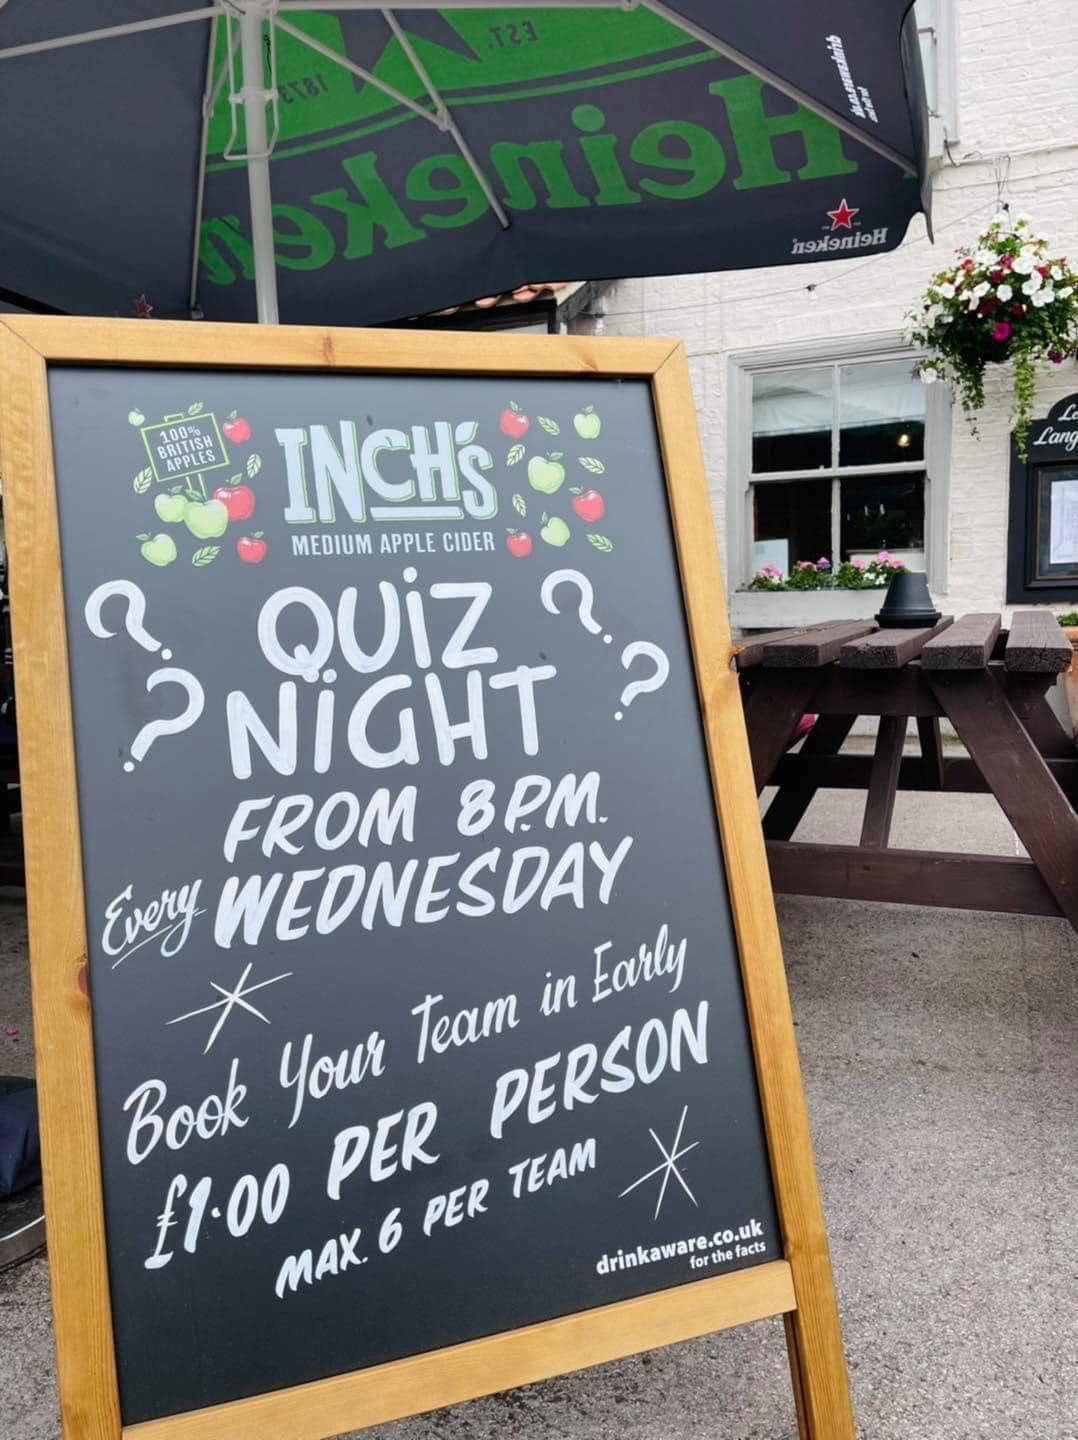 EST.
1873
Heineken
Heineken
100%
BRITISH
APPLES
INCH'S
MEDIUM APPLE CIDER
? QUIZ ?
? NIGHT ?
FROM 8P.M.
Every WEDNESDAY
Book Your Team in Early
£1.00 PER PERSON
MAX. 6 PER TEAM
drinkaware.co.uk
for the facts